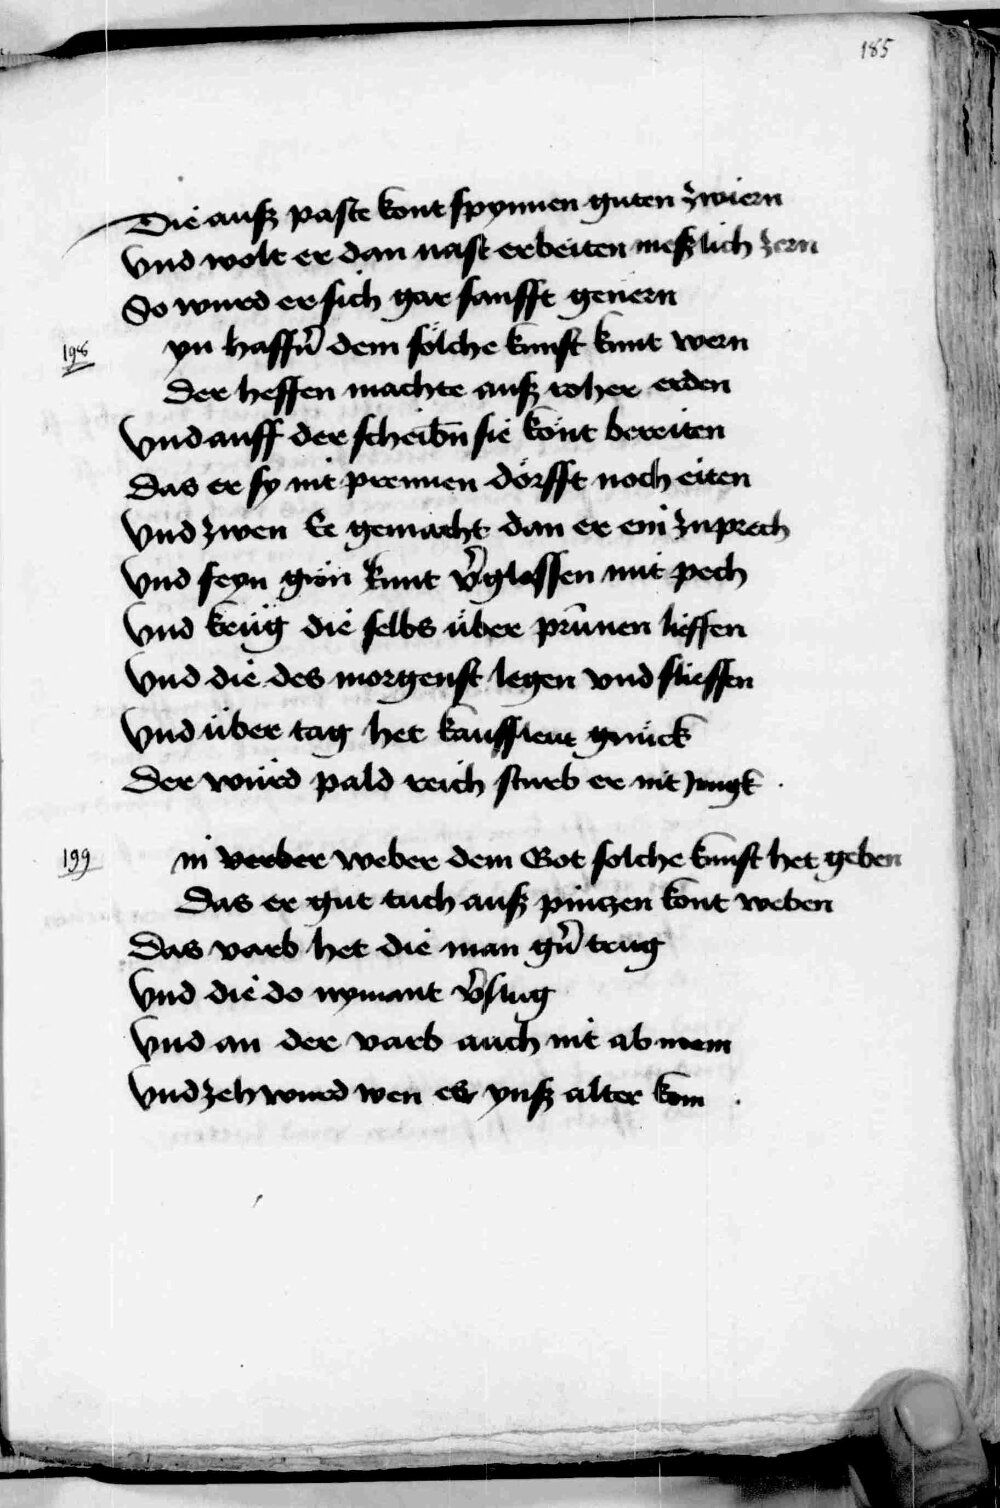 185
Die auß paste kont spynnen guten zwiern
Vnd wolt er dan nast erbeiten meßlich zern
So wurd er sich gar sanfft genern
198
yn haffn̄ dem sölche kunst kunt wern
Der heffen machte auß roher erden
Vnd auff der scheibn̄ sie könt bereiten
Das er sy nit prennen dörfft noch eiten
Vnd zwen Ee gemacht dan er ein zuprech
Vnd seyn grün kunt v̄glassen mit pech
Vnd krüg die selbs über prūnen lieffen
Vnd die des morgenst legen vnd slieffen
Vnd über tag het kauffleut gnück
Der würd pald reich sturb er nit Jungk .
199
in verber weber dem Got solche kunst het geben
Das er gut tuch auß pintzen kont weben
Das varb het die man gn̄ trug
Vnd die do nymant v̄slug
Vnd an der varb auch nit ab nem
Vnd zeh wurd wen es ynß alter kem .